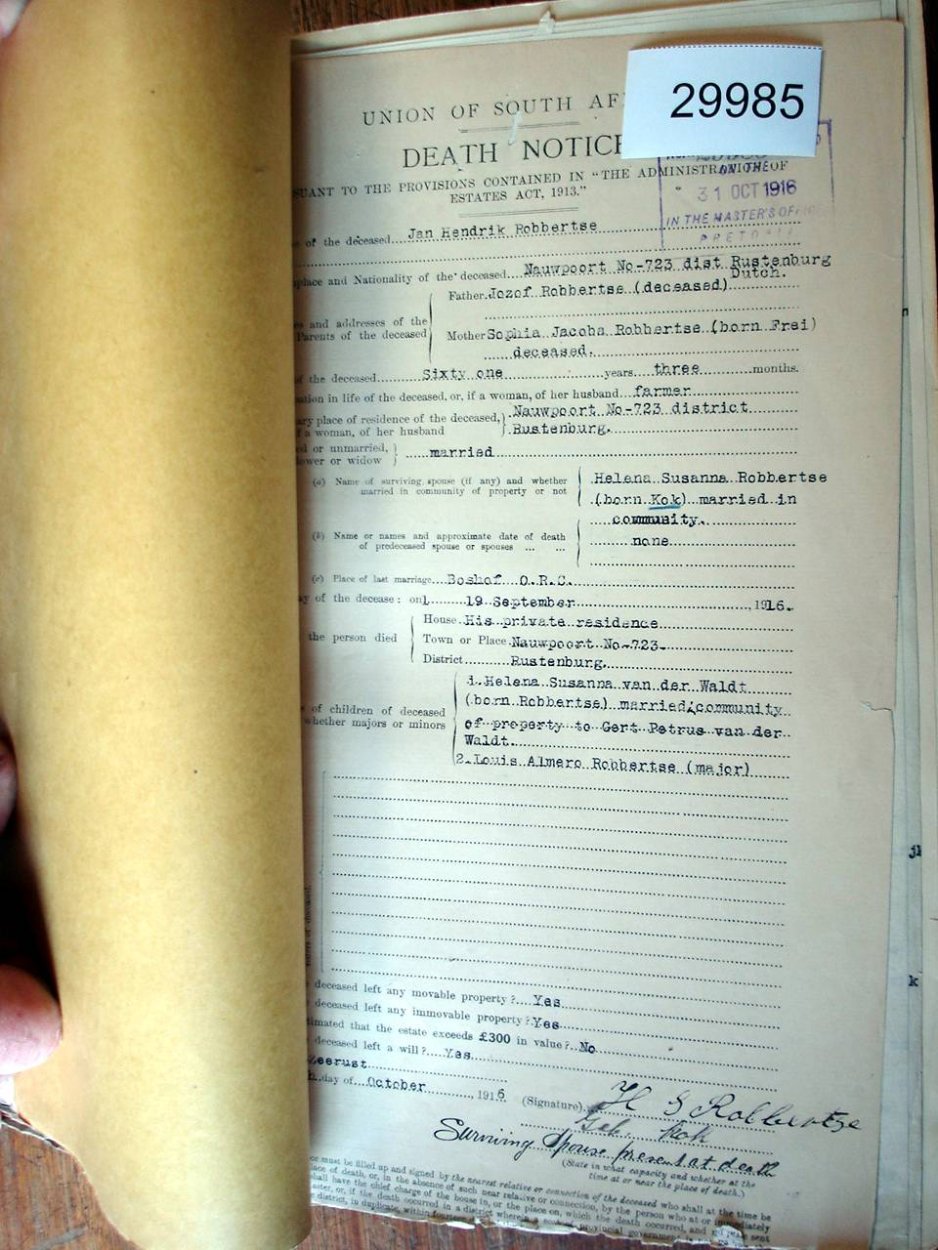 29985
UNION OF SOUTH
DEATH NOTICE
PURSUANT TO THE PROVISIONS CONTAINED IN "THE ADMINISTRATION OF
ESTATES ACT, 1913."
ON THE
31 OCT 1916
IN THE MASTER'S OFFICE
PRETORIA
of the deceased Jan Hendrik Robbertse
place and Nationality of the deceased Nauwpoort No-723 dist Rustenburg
Dutch.
Father Jozof Robbertse (deceased)
es and addresses of the
Parents of the deceased
Mother Sophia Jacoba Robbertse (born Frei)
deceased.
of the deceased Sixty one years three months.
ation in life of the deceased, or, if a woman, of her husband farmer
ary place of residence of the deceased, Nauwpoort No-723 district
if a woman, of her husband Rustenburg.
ed or unmarried,
ower or widow married
(a) Name of surviving spouse (if any) and whether Helena Susanna Robbertse
married in community of property or not (born Kok) married in
community.
(b) Name or names and approximate date of death none
of predeceased spouse or spouses ... ...
(c) Place of last marriage Boshof O.R.C.
ay of the decease: on 19 September 1916.
House His private residence
the person died Town or Place Nauwpoort No-723-
District Rustenburg.
1. Helena Susanna van der Waldt
(born Robbertse) married/community
of children of deceased of property to Gert Petrus van der
whether majors or minors Waldt.
2. Louis Almero Robbertse (major)
deceased left any movable property? Yes
deceased left any immovable property? Yes
timated that the estate exceeds £300 in value? No
deceased left a will? Yes.
Zeerust
day of October, 1916
(Signature) H S Robbertse
Geb. Kok
Surviving Spouse present at death
(State in what capacity and whether at the
time at or near the place of death.)
ce must be filled up and signed by the nearest relative or connection of the deceased who shall at the time be
place of death, or, in the absence of such near relative or connection, by the person who at or immediately
shall have the chief charge of the house in, or the place on, which the death occurred, and
sent
district, in duplicate, within